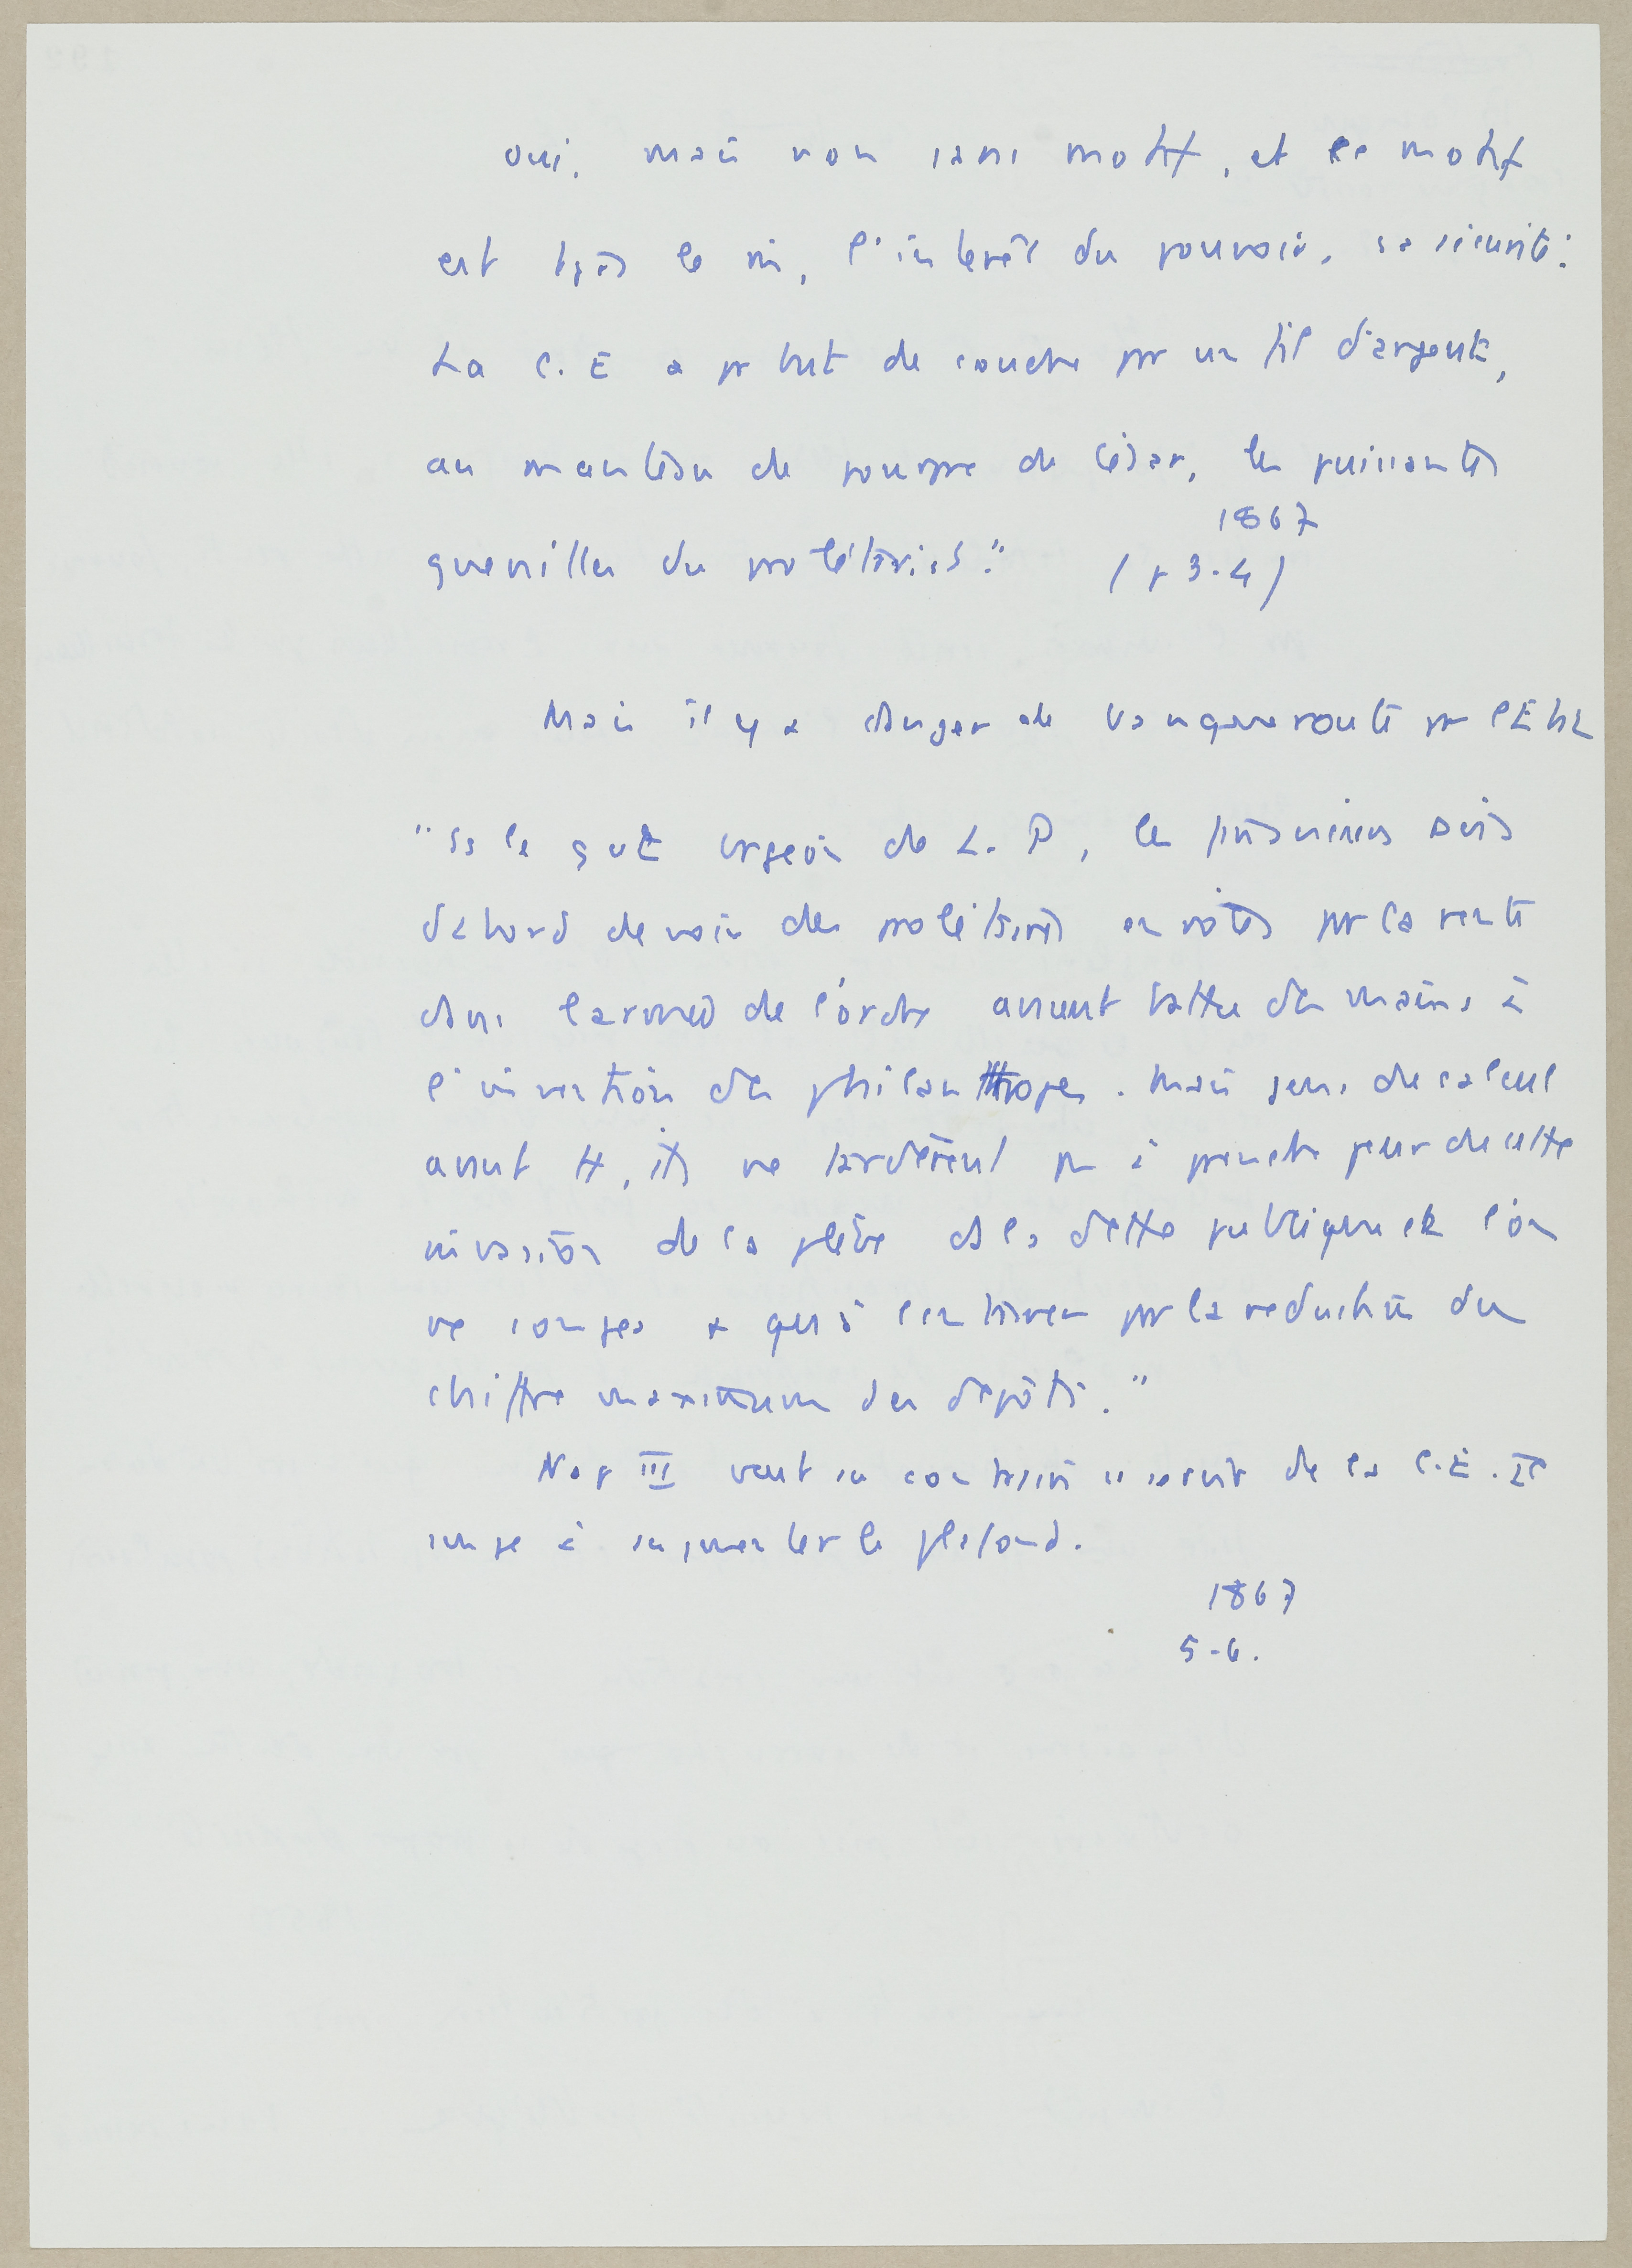 oui, mais non sans motif, et ce motif
est tjrs le mm, l'intérêt du pouvoir, sa sécurité:
La C.E a pr but de coudre pr un fil d'argent,
au manteau de pourpre de César, les puissantes
guenilles du prolétariat." 1867
(p 3-4)
Mais il y a danger de banqueroute pr l'Etat
"Ss le gvt de L. P, les financiers
d'abord de voir des prolétaires par la rente
dans l'armée de l'ordre avaient battu des mains à
l'invention des philanthropes. Mais gens de calcul
avant tt, ils ne tardèrent pas à prendre peur de cette
invasion de la plèbe ds la dette publique et l'on
ne songea + qu'à l'entraver par la réduction du
chiffre maximum des dépôts."
Nap III veut au contraire se servir de la C.E. Il
songe à augmenter le plafond.
1867
5-6.